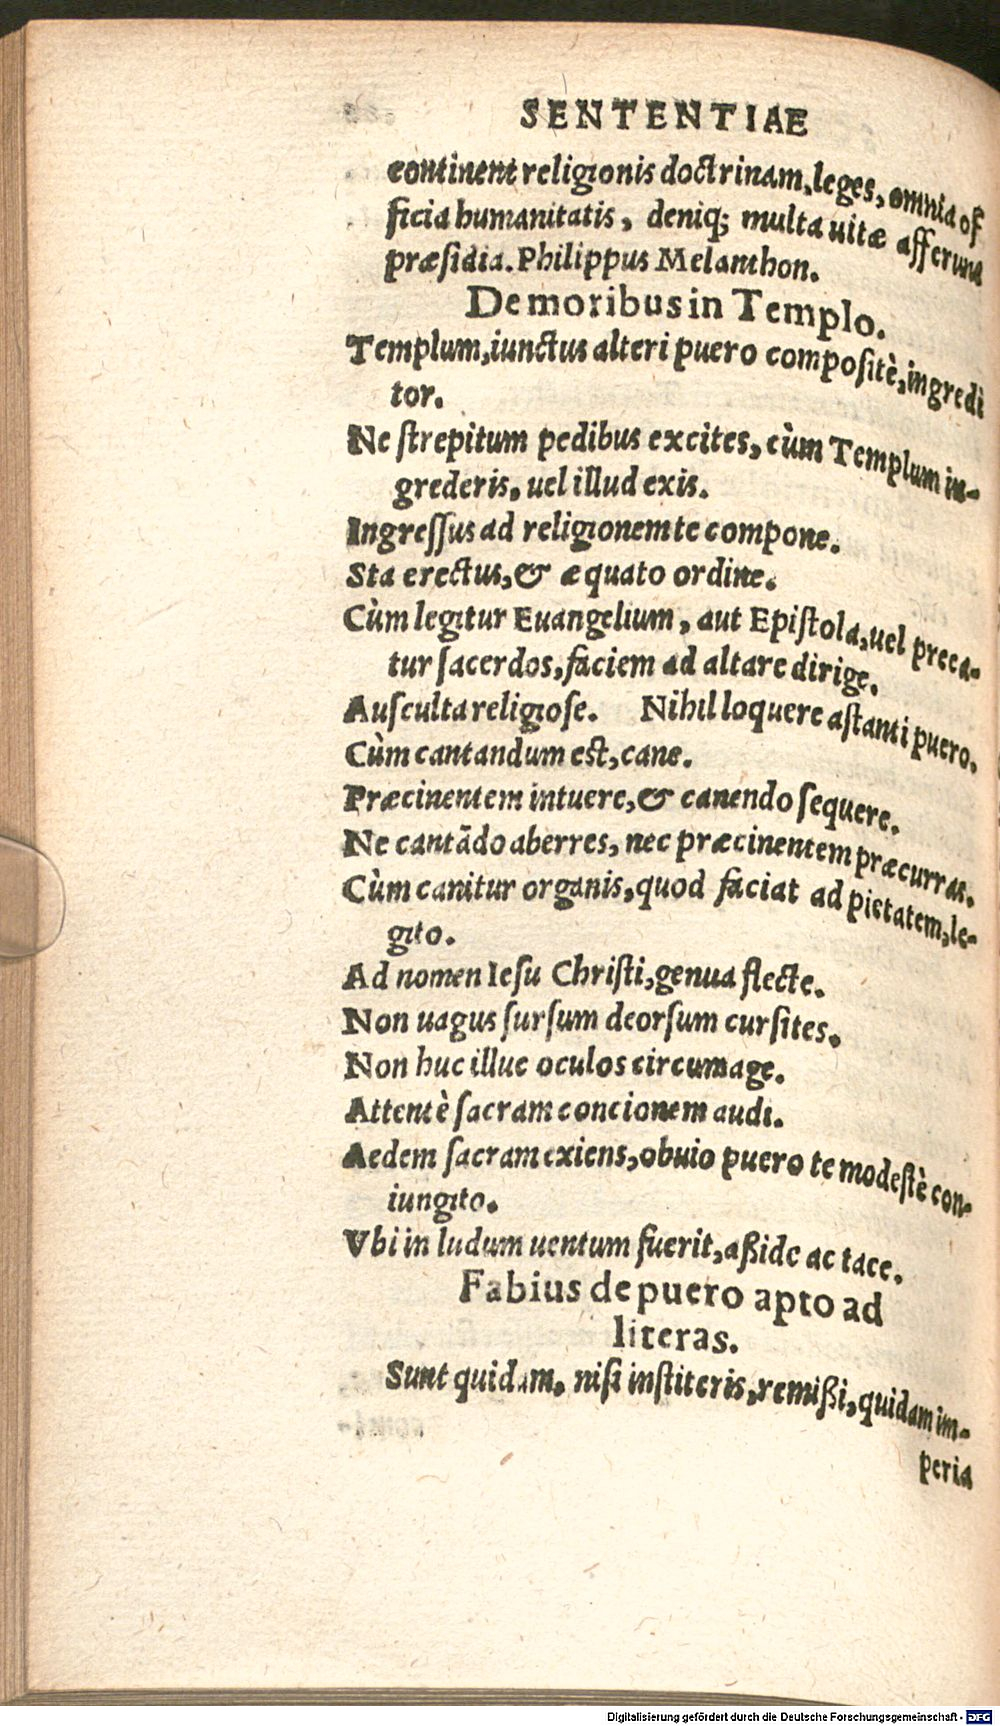 SENTENTIAE
continent religionis doctrinam, leges, omnia of
ficia humanitatis, deniq; multa uitæ afferunt
præsidia. Philippus Melanthon.
De moribus in Templo.
Templum, iunctus alteri puero compositè, ingredi
tor.
Ne strepitum pedibus excites, cùm Templum in-
grederis, uel illud exis.
Ingressus ad religionem te compone.
Sta erectus, & æquato ordine.
Cùm legitur Euangelium, aut Epistola, uel preca-
tur sacerdos, faciem ad altare dirige.
Ausculta religiose. Nihil loquere astanti puero.
Cùm cantandum est, cane.
Præcinentem intuere, & canendo sequere.
Ne cantādo aberres, nec præcinentem præcurras.
Cùm canitur organis, quod faciat ad pietatem, le-
gito.
Ad nomen Iesu Christi, genua flecte.
Non uagus sursum deorsum cursites.
Non huc illuc oculos circumage.
Attentè sacram concionem audi.
Aedem sacram exiens, obuio puero te modestè con-
iungito.
Vbi in ludum uentum fuerit, aßide ac tace.
Fabius de puero apto ad
literas.
Sunt quidam, nisi institeris, remißi, quidam im-
peria
Digitalisierung gefördert durch die Deutsche Forschungsgemeinschaft - DFG